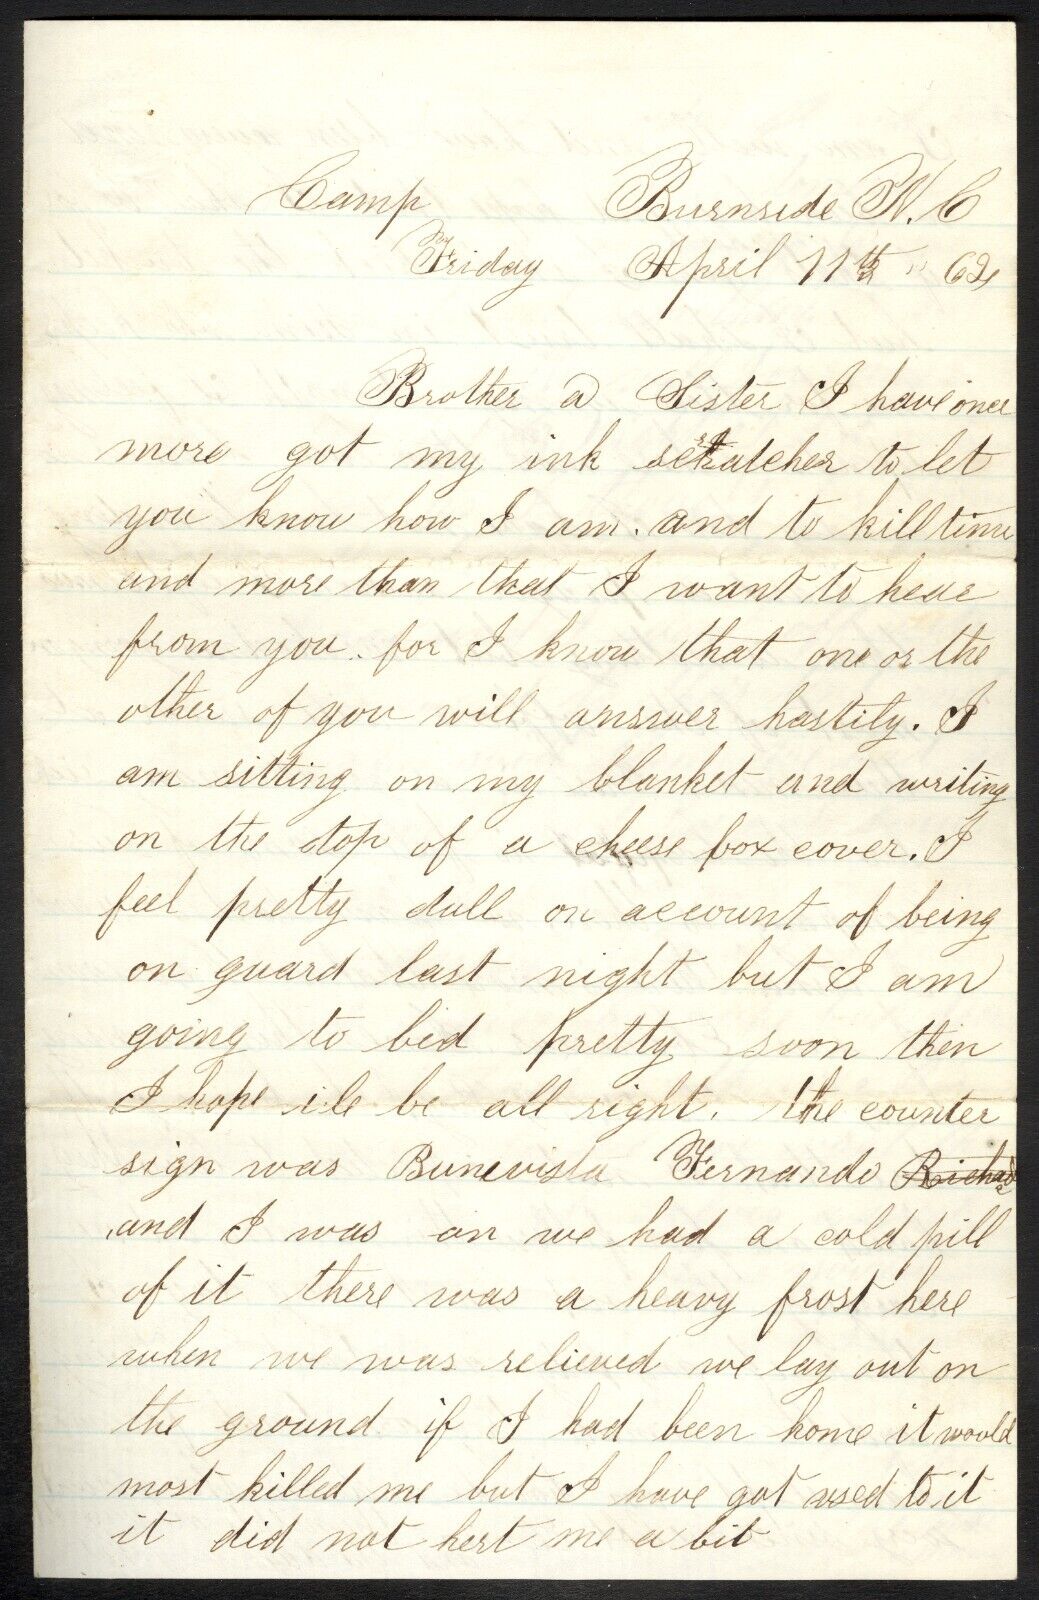 Camp Burnside N. C
Friday April 11th " 62
Brother a Sister I have once
more got my ink scratcher to let
you know how I am. and to kill time
and more than that I want to hear
from you. for I know that one or the
other of you will answer hastily. I
am sitting on my blanket and writing
on the top of a cheese box cover. I
feel pretty dull on account of being
on guard last night but I am
going to bed pretty soon then
I hope ile be all right. the counter
sign was Bunevista Fernando Richard
and I was on we had a cold pill
of it there was a heavy frost here
when we was relieved we lay out on
the ground if I had been home it would
most killed me but I have got used to it
it did not hert me a bit